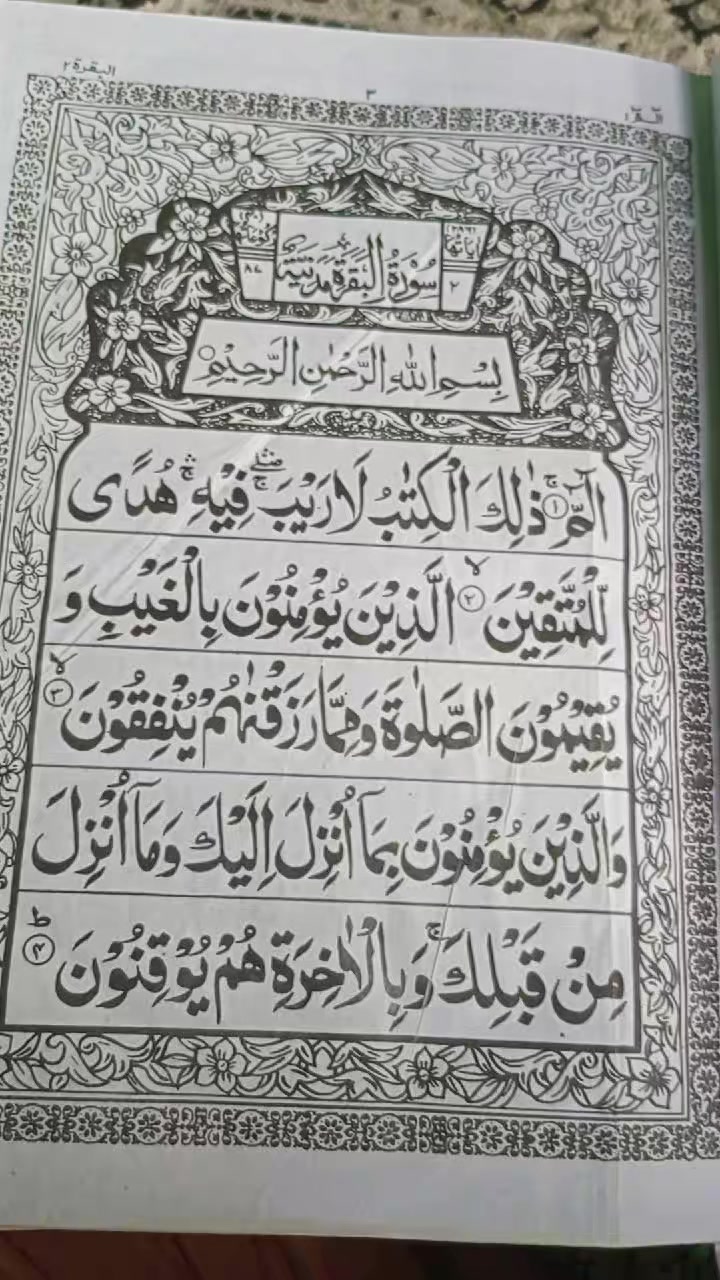 الٓمّٓ ١
٣
البقرة ٢
اٰيَاتُهَا ٢٨٦
سُوْرَةُ الْبَقَرَةِ مَدَنِيَّةٌ
رُكُوْعَاتُهَا
٢
٨٧
بِسْمِ اللّٰهِ الرَّحْمٰنِ الرَّحِيْمِ
الٓمّٓ ۚ﴿١﴾ ذٰلِكَ الْكِتٰبُ لَا رَيْبَ ۛۖۚ فِيْهِ ۛۚ هُدًى
لِّلْمُتَّقِيْنَ ۙ﴿٢﴾ الَّذِيْنَ يُؤْمِنُوْنَ بِالْغَيْبِ وَ
يُقِيْمُوْنَ الصَّلٰوةَ وَمِمَّا رَزَقْنٰهُمْ يُنْفِقُوْنَ ۙ﴿٣﴾
وَالَّذِيْنَ يُؤْمِنُوْنَ بِمَآ اُنْزِلَ اِلَيْكَ وَمَآ اُنْزِلَ
مِنْ قَبْلِكَ ۚ وَبِالْاٰخِرَةِ هُمْ يُوْقِنُوْنَ ؕ﴿٤﴾